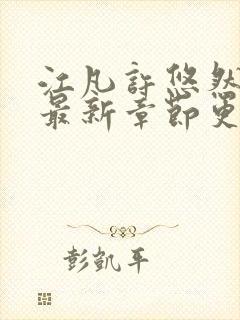 江凡许悠然
最新章节更
彭凯平